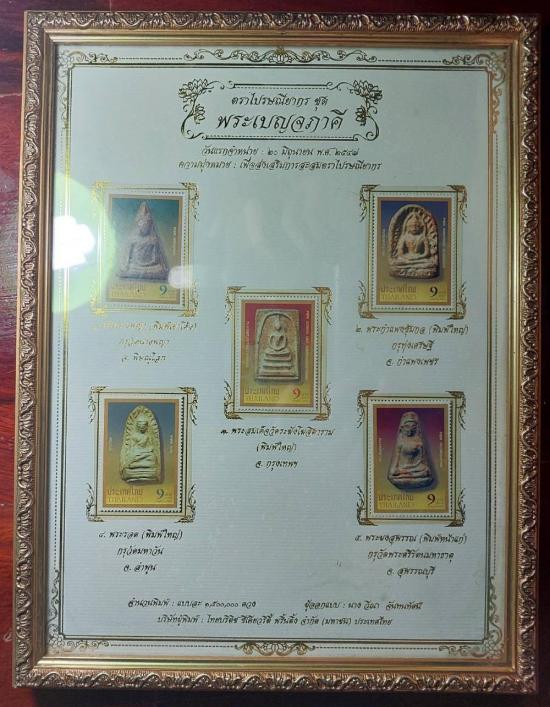 ตราไปรษณียากร ชุด
พระเบญจภาคี
วันแรกจำหน่าย : ๒๐ มิถุนายน พ.ศ. ๒๕๔๘
ความมุ่งหมาย : เพื่อส่งเสริมการสะสมตราไปรษณียากร
ประเทศไทย
THAILAND
9
กรุวัดนางพญา
จ. พิษณุโลก
ประเทศไทย
THAILAND
9
๒. พระกำแพงซุ้มกอ (พิมพ์ใหญ่)
กรุทุ่งเศรษฐี
จ. กำแพงเพชร
ประเทศไทย
THAILAND
9
๑. พระสมเด็จวัดระฆังโฆสิตาราม
(พิมพ์ใหญ่)
จ. กรุงเทพฯ
ประเทศไทย
THAILAND
9
๔. พระรอด (พิมพ์ใหญ่)
กรุวัดมหาวัน
จ. ลำพูน
ประเทศไทย
THAILAND
9
๕. พระผงสุพรรณ (พิมพ์หน้าแก่)
กรุวัดพระศรีรัตนมหาธาตุ
จ. สุพรรณบุรี
จำนวนพิมพ์ : แบบละ ๑,๕๐๐,๐๐๐ ดวง
ผู้ออกแบบ : นาง วีณา จันทนทัศน์
บริษัทผู้พิมพ์ : ไทยบริติช ซีเคียวริตี้ พริ้นติ้ง จำกัด (มหาชน) ประเทศไทย